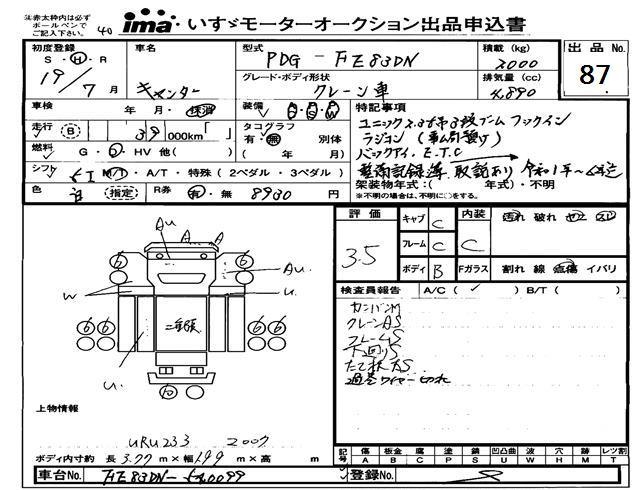 ※赤太枠内は必ず
ボールペンで
ご記入下さい。
40
ima いすゞモーターオークション出品申込書
初度登録 S・H・R 19/7月
車名 キャンター
型式 PDG-FE83DN
積載 (kg) 2000
出品No. 87
グレード・ボディ形状 クレーン車
排気量 (cc) 4890
車検 年・月・抹消
装備
走行 B 39 000km
タコグラフ 有・無 別体
( 年 月)
燃料 G・D・HV 他( )
シフト MT・A/T・特殊(2ペダル・3ペダル)
色 白 (指定)
R券 有・無 8930円
特記事項
ユニック 2.93t 3段ブーム フックイン
ラジコン
バックアイ、E.T.C
整備記録簿 取説あり 令和1年~6年迄
架装物年式:( 年式)・不明
※不明の場合は、不明に○をする。
評価 3.5
キャブ C
フレーム C
ボディ B
内装 C
Fガラス
汚れ 破れ
割れ 線 点傷 イバリ
検査員報告 A/C( ✓ ) B/T( )
カンバンM
クレーンAS
フレームS
下回りS
過巻ワイヤー切れ
Au A A
Au
W u.
6 6 6 6
二重張
u.
10
上物情報
URU233 2007
ボディ内寸約 長 3.77 m×幅 1.99 m×高 m
記号 傷 板金 腐 塗 錆 凹凸曲 波 穴 跡 レッツ割
A B C P S U W H M T
車台No. FE83DN-540099
登録No.